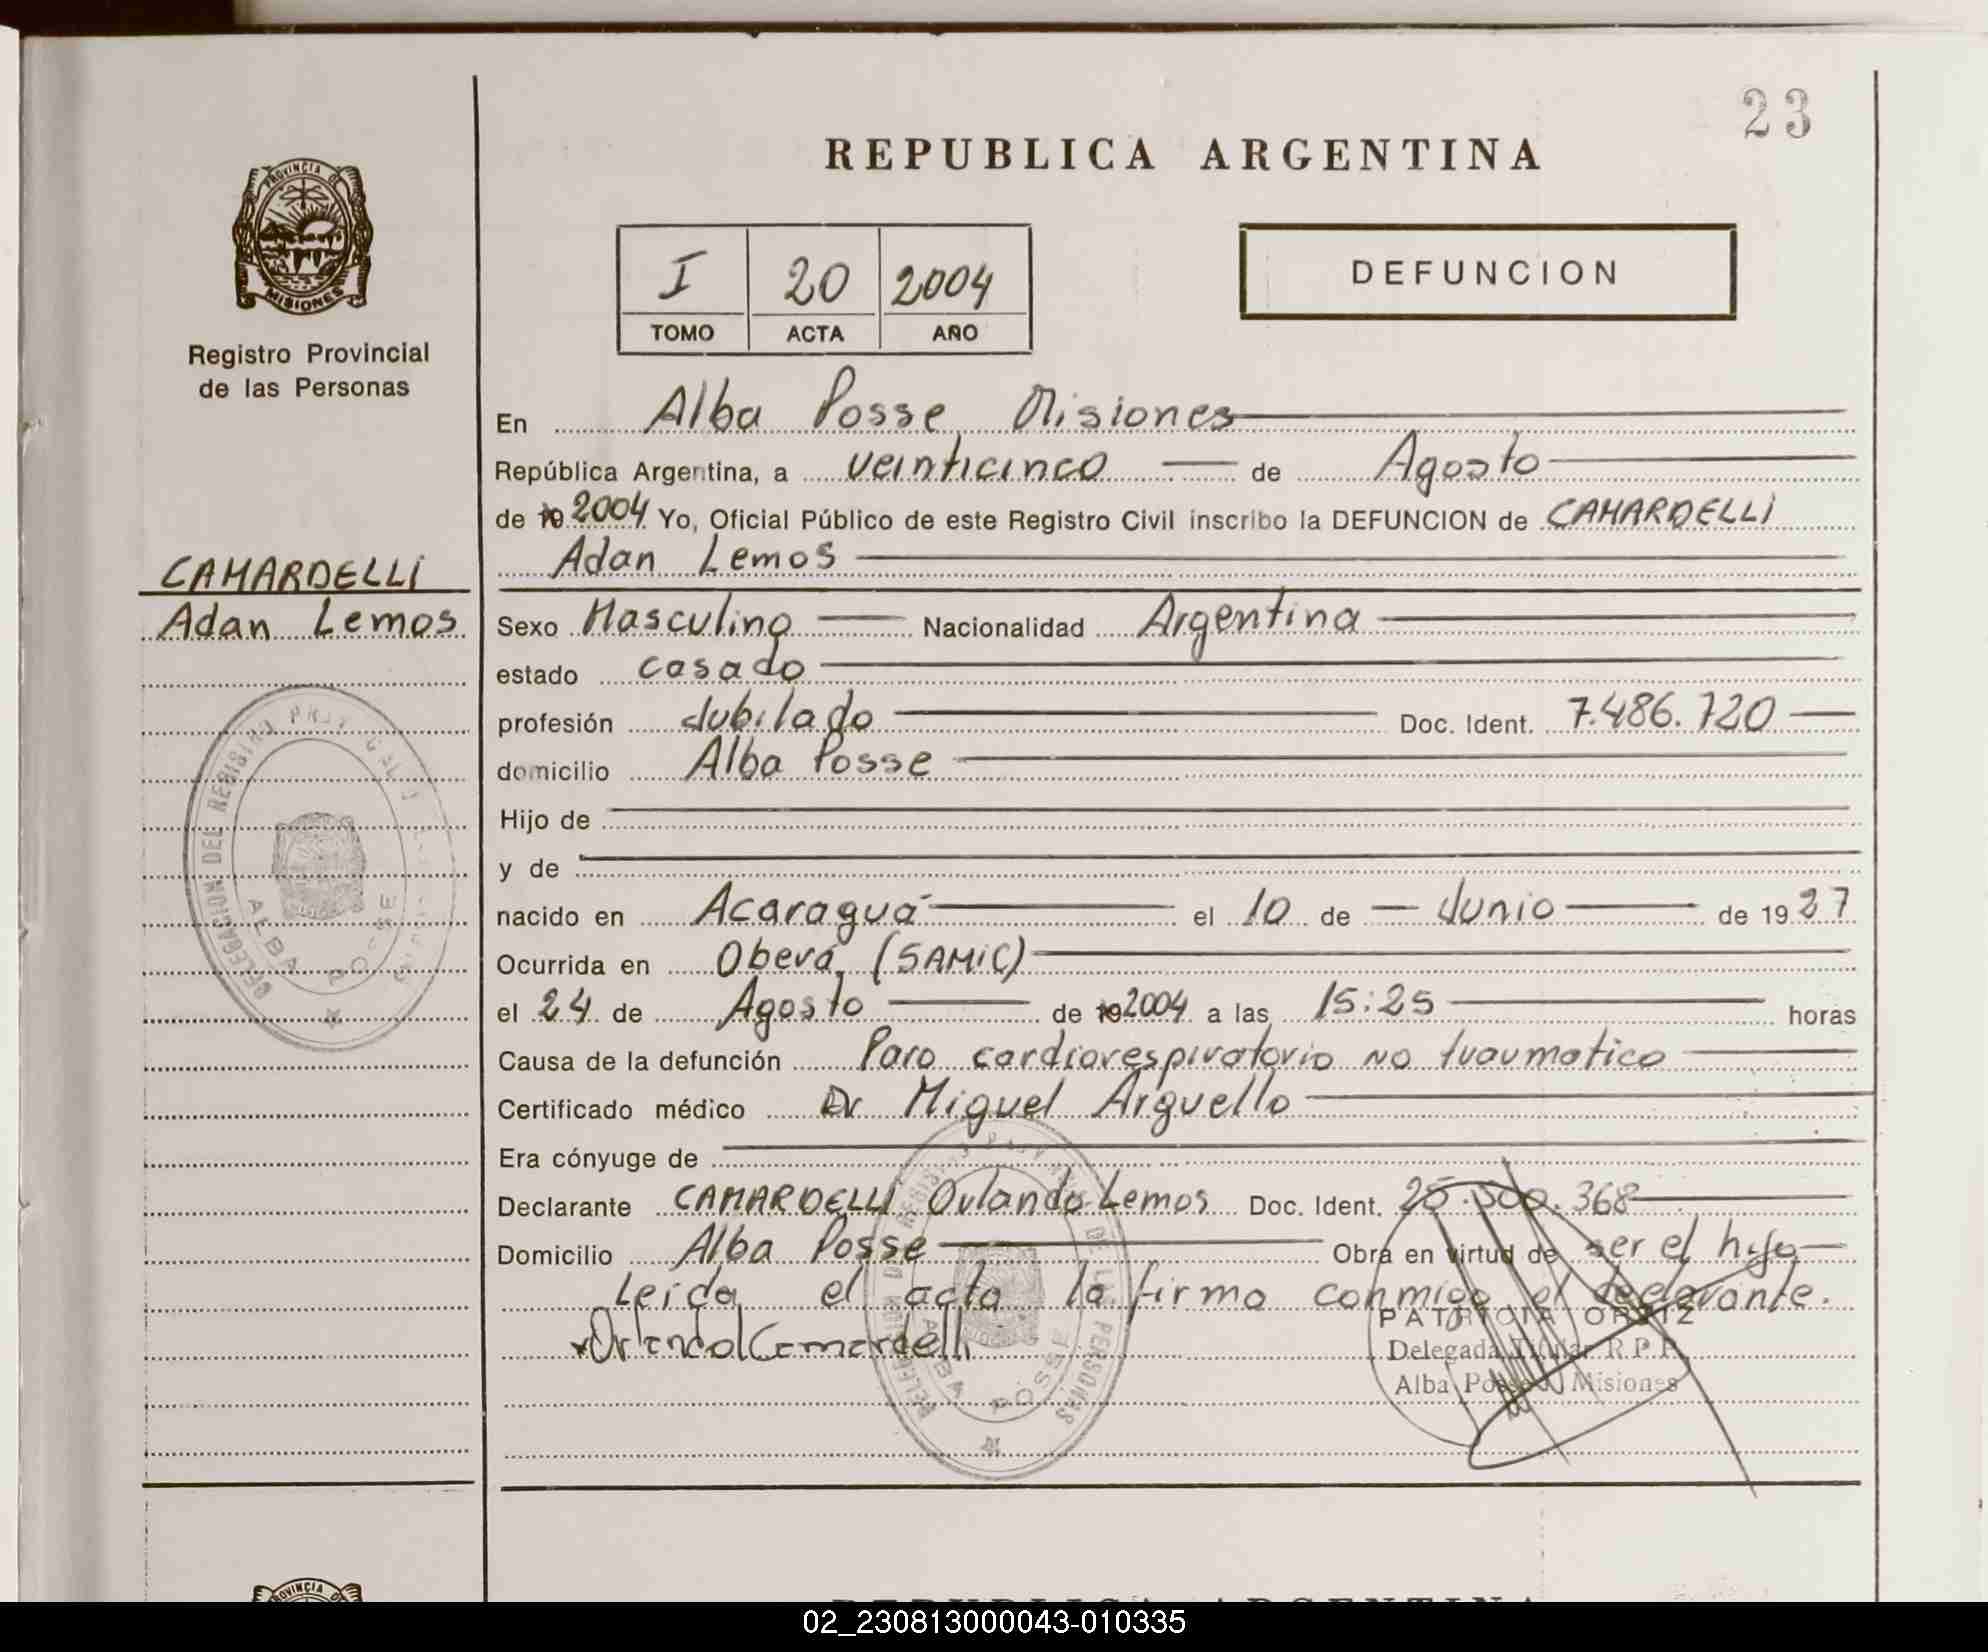 23
REPUBLICA ARGENTINA
PROVINCIA DE
MISIONES
Registro Provincial
de las Personas
I 20 2004
TOMO ACTA AÑO
DEFUNCION
En Alba Posse Misiones
República Argentina, a veinticinco de Agosto
de 19 2004 Yo, Oficial Público de este Registro Civil inscribo la DEFUNCION de CAMARDELLI
Adan Lemos
CAMARDELLI
Adan Lemos
Sexo Masculino Nacionalidad Argentina
estado casado
profesión Jubilado Doc. Ident. 7.486.720
domicilio Alba Posse
Hijo de
y de
nacido en Acaraguá el 10 de Junio de 1927
Ocurrida en Oberá, (SAMiC)
el 24 de Agosto de 19 2004 a las 15:25 horas
Causa de la defunción Paro cardiorespiratorio no traumatico
Certificado médico Dr Miguel Arguello
Era cónyuge de
Declarante CAMARDELLI Orlando Lemos Doc. Ident. 25.500.368
Domicilio Alba Posse Obra en virtud de ser el hijo
Leida el acta la firma conmigo el declarante.
Orlando L Camardelli
PATRICIA ORTIZ
Delegada Titular R.P.P.
Alba Posse Misiones
DELEGACION DEL REGISTRO
ALBA POSSE
DE LAS PERSONAS
ALBA POSSE
PROVINCIA DE
REPUBLICA ARGENTINA
02_230813000043-010335